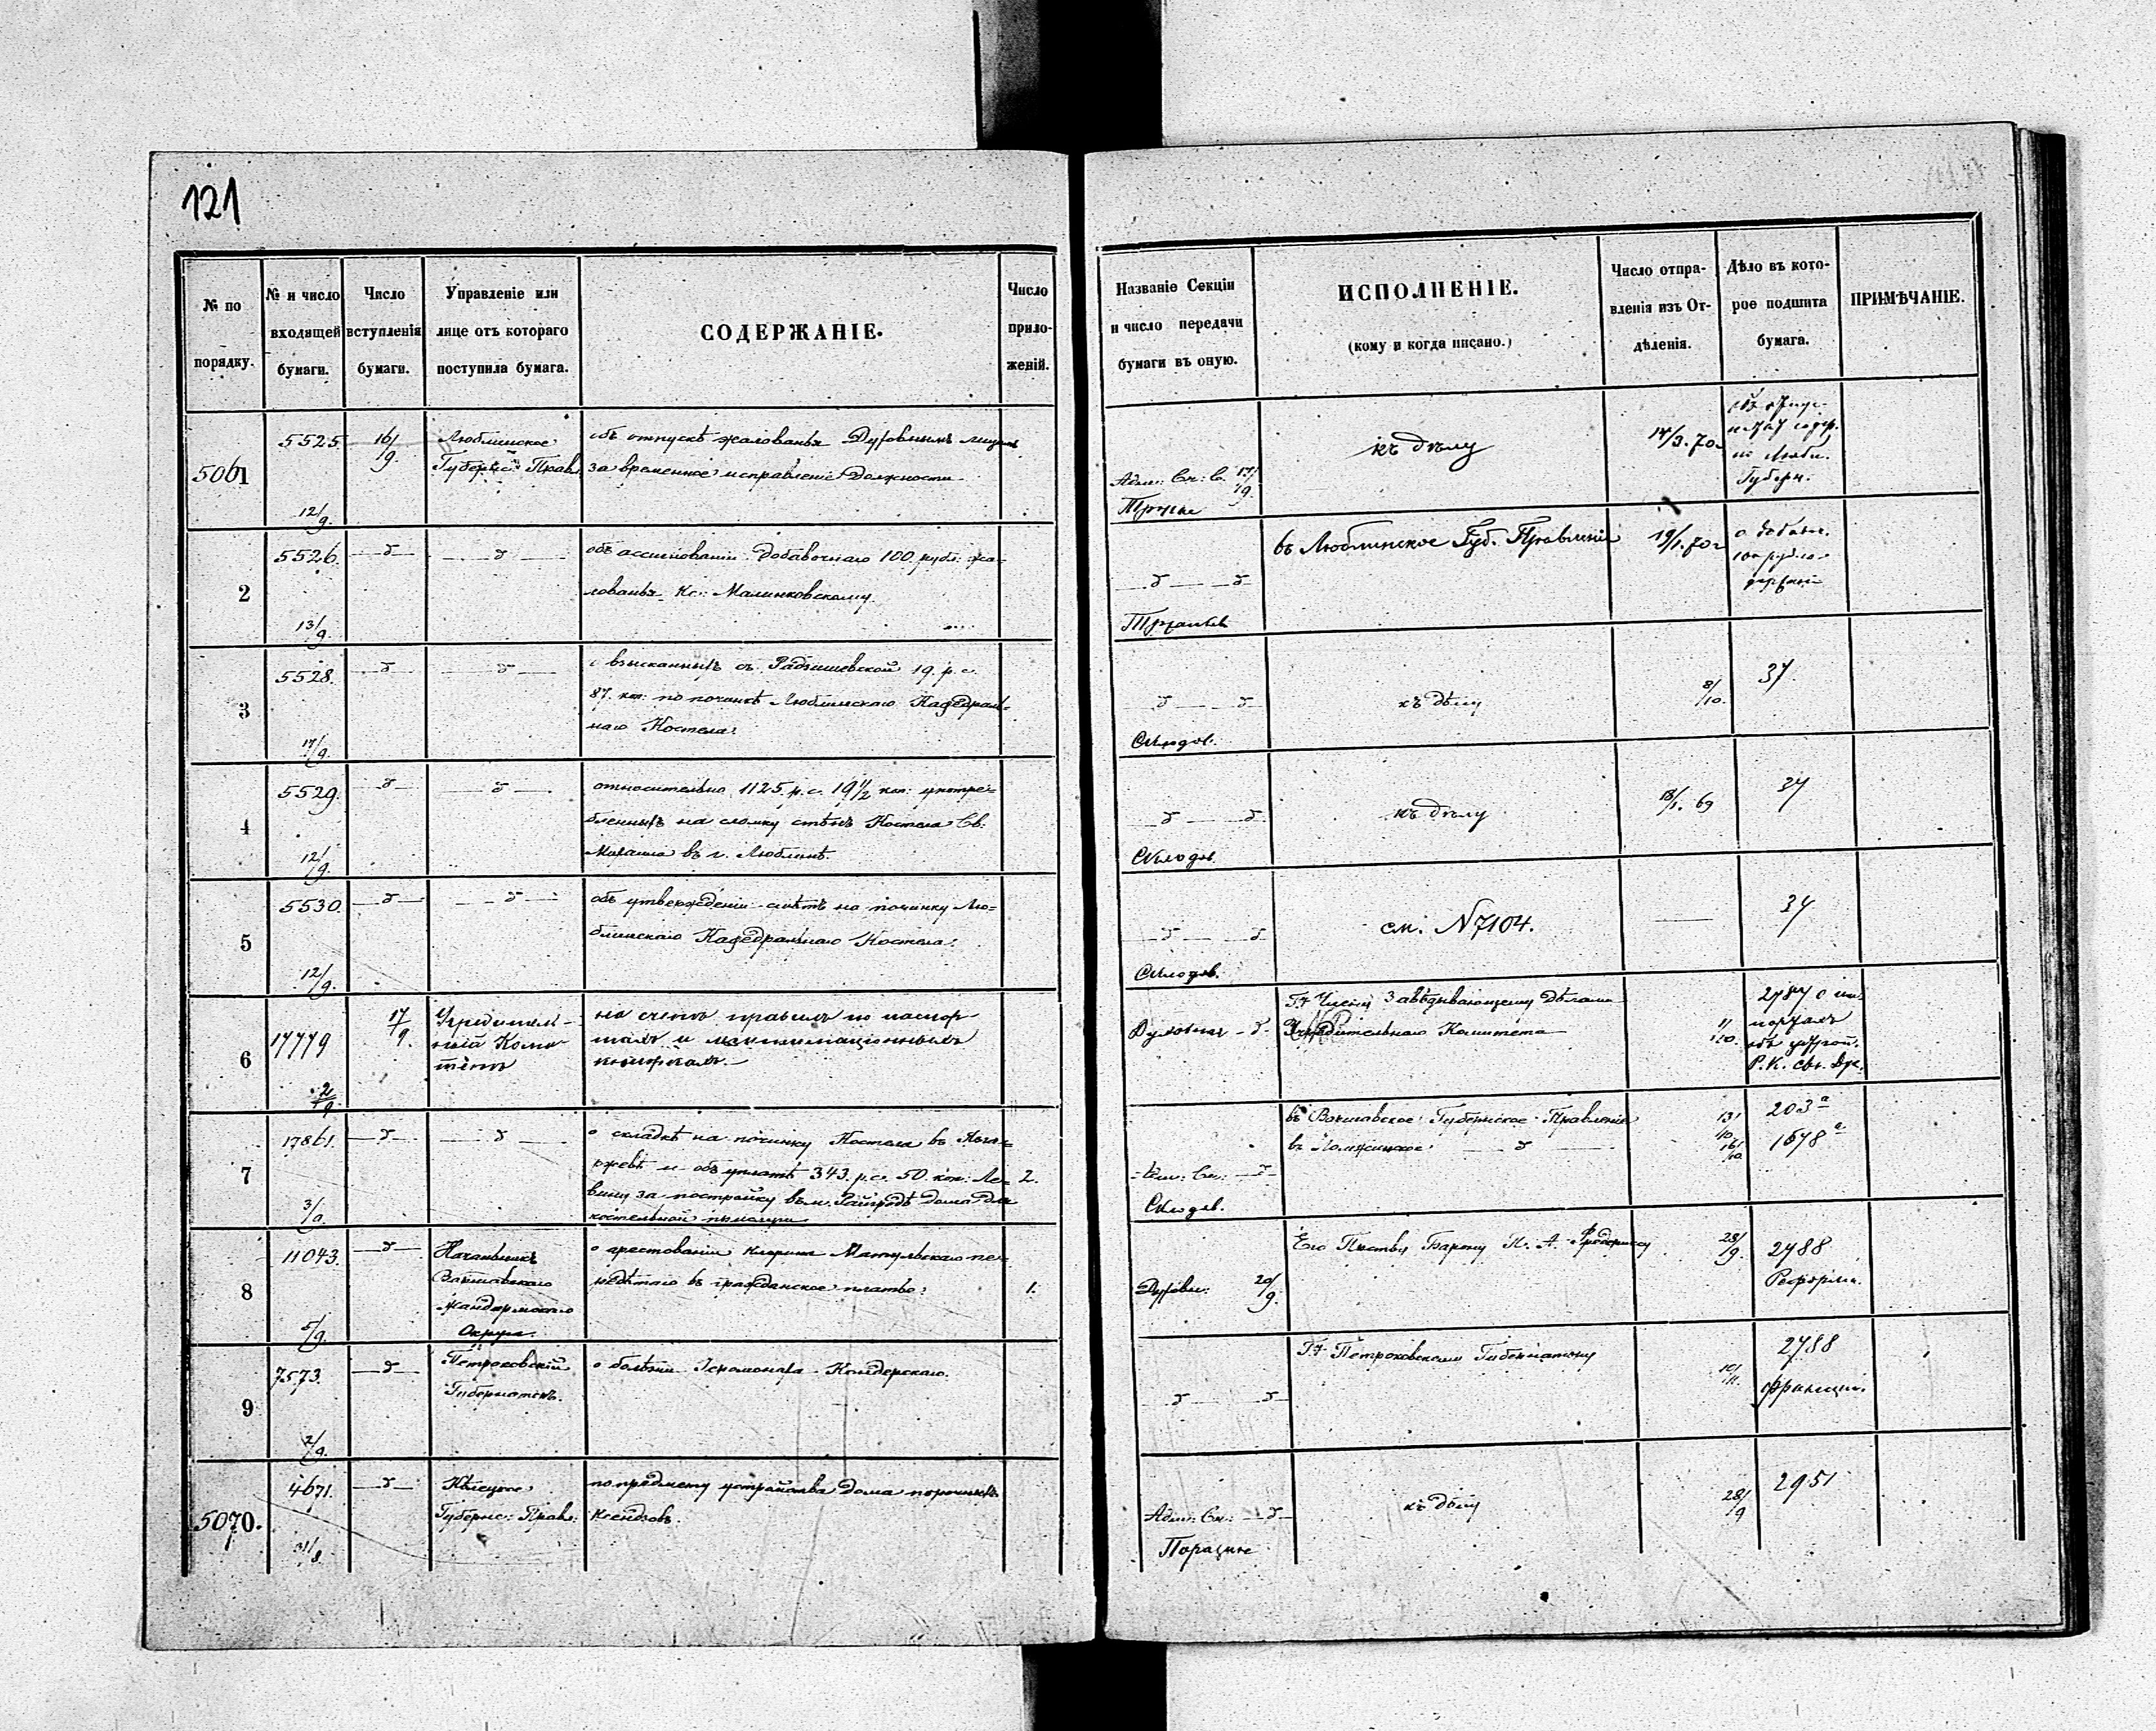 121
№ по порядку.
№ и число входящей бумаги.
Число вступленія бумаги.
Управленіе или лице отъ котораго поступила бумага.
СОДЕРЖАНІЕ.
Число приложеній.
Названіе Секціи и число передачи бумаги въ оную.
ИСПОЛНЕНІЕ.
(кому и когда писано.)
Число отправленія изъ Отдѣленія.
Дѣло въ которое подшита бумага.
ПРИМѢЧАНІЕ.
5061
5525
12/9.
16/9.
Люблинское
Губернс. Правл.
объ отпускѣ жалованья Духовнымъ лицамъ
за временное исправленіе Должности
Адм: Сч: С. 17/9.
къ дѣлу
14/3. 70
по Любл.
Губерн.
2
5526.
13/9.
объ ассигнованіи добавочнаго 100 рубл: жа-
лованья Кс: Малинковскому
въ Люблинское Губ. Правленіе
19/1. 70
3
5528.
17/9.
о взысканныхъ съ Радзишевской 19. р. с.
87. коп: по починкѣ Люблинскаго Кафедраль-
наго Костела.
Склодов.
къ дѣлу
8/10.
37.
4
5529.
12/9.
относительно 1125. р. с. 19 1/2 коп: употре-
бленныхъ на сломку стѣнъ Костела Св:
Михаила въ г. Люблинѣ.
Склодов.
къ дѣлу
18/1. 69
37
5
5530.
12/9.
объ утвержденіи смѣтъ на починку Лю-
блинскаго Кафедральнаго Костела.
Склодов.
см. N 7104.
37
6
17779
2/9
17/9.
Учредитель-
ный Коми-
тетъ
на счетъ правилъ по паспор-
тамъ и легитимаціоннымъ
книжкамъ.
Духовная
Г. Члену Завѣдывающему Дѣлами
Учредительнаго Комитета
11/10.
2787 о
Р. К. св. Дух.
7
17861.
3/9.
о складкѣ на починку Костела въ
и объ уплатѣ 343. р. с. 50. коп: Ле-
вину за постройку въ м. Райгродѣ Дома для
костельной прислуги
2.
Адм: Сч:
Склодов.
въ Варшавское Губернское Правленіе
въ Ломжинское
13/10.
16/10.
203 а
1678 а
8
11043.
5/9.
Начальникъ
Варшавскаго
Жандармскаго
Округа.
о арестованіи клирика Матульскаго пе-
реодѣтаго въ гражданское платье.
1.
Духовн: 20/9.
Его Пр-ству Барону П. А. Фредериксу
28/9.
2788
Реформ.
9
7573.
2/9.
Петроковскій
Губернаторъ.
о болѣзни Іеромонаха
Г. Петроковскому Губернатору
10/11.
2788
францисц.
5070.
4671.
31/8
Кѣлецкое
Губернс: Правл:
по предмету устройства Дома порочныхъ
Ксендзовъ.
Адм: Сч:
къ дѣлу
28/9
2951